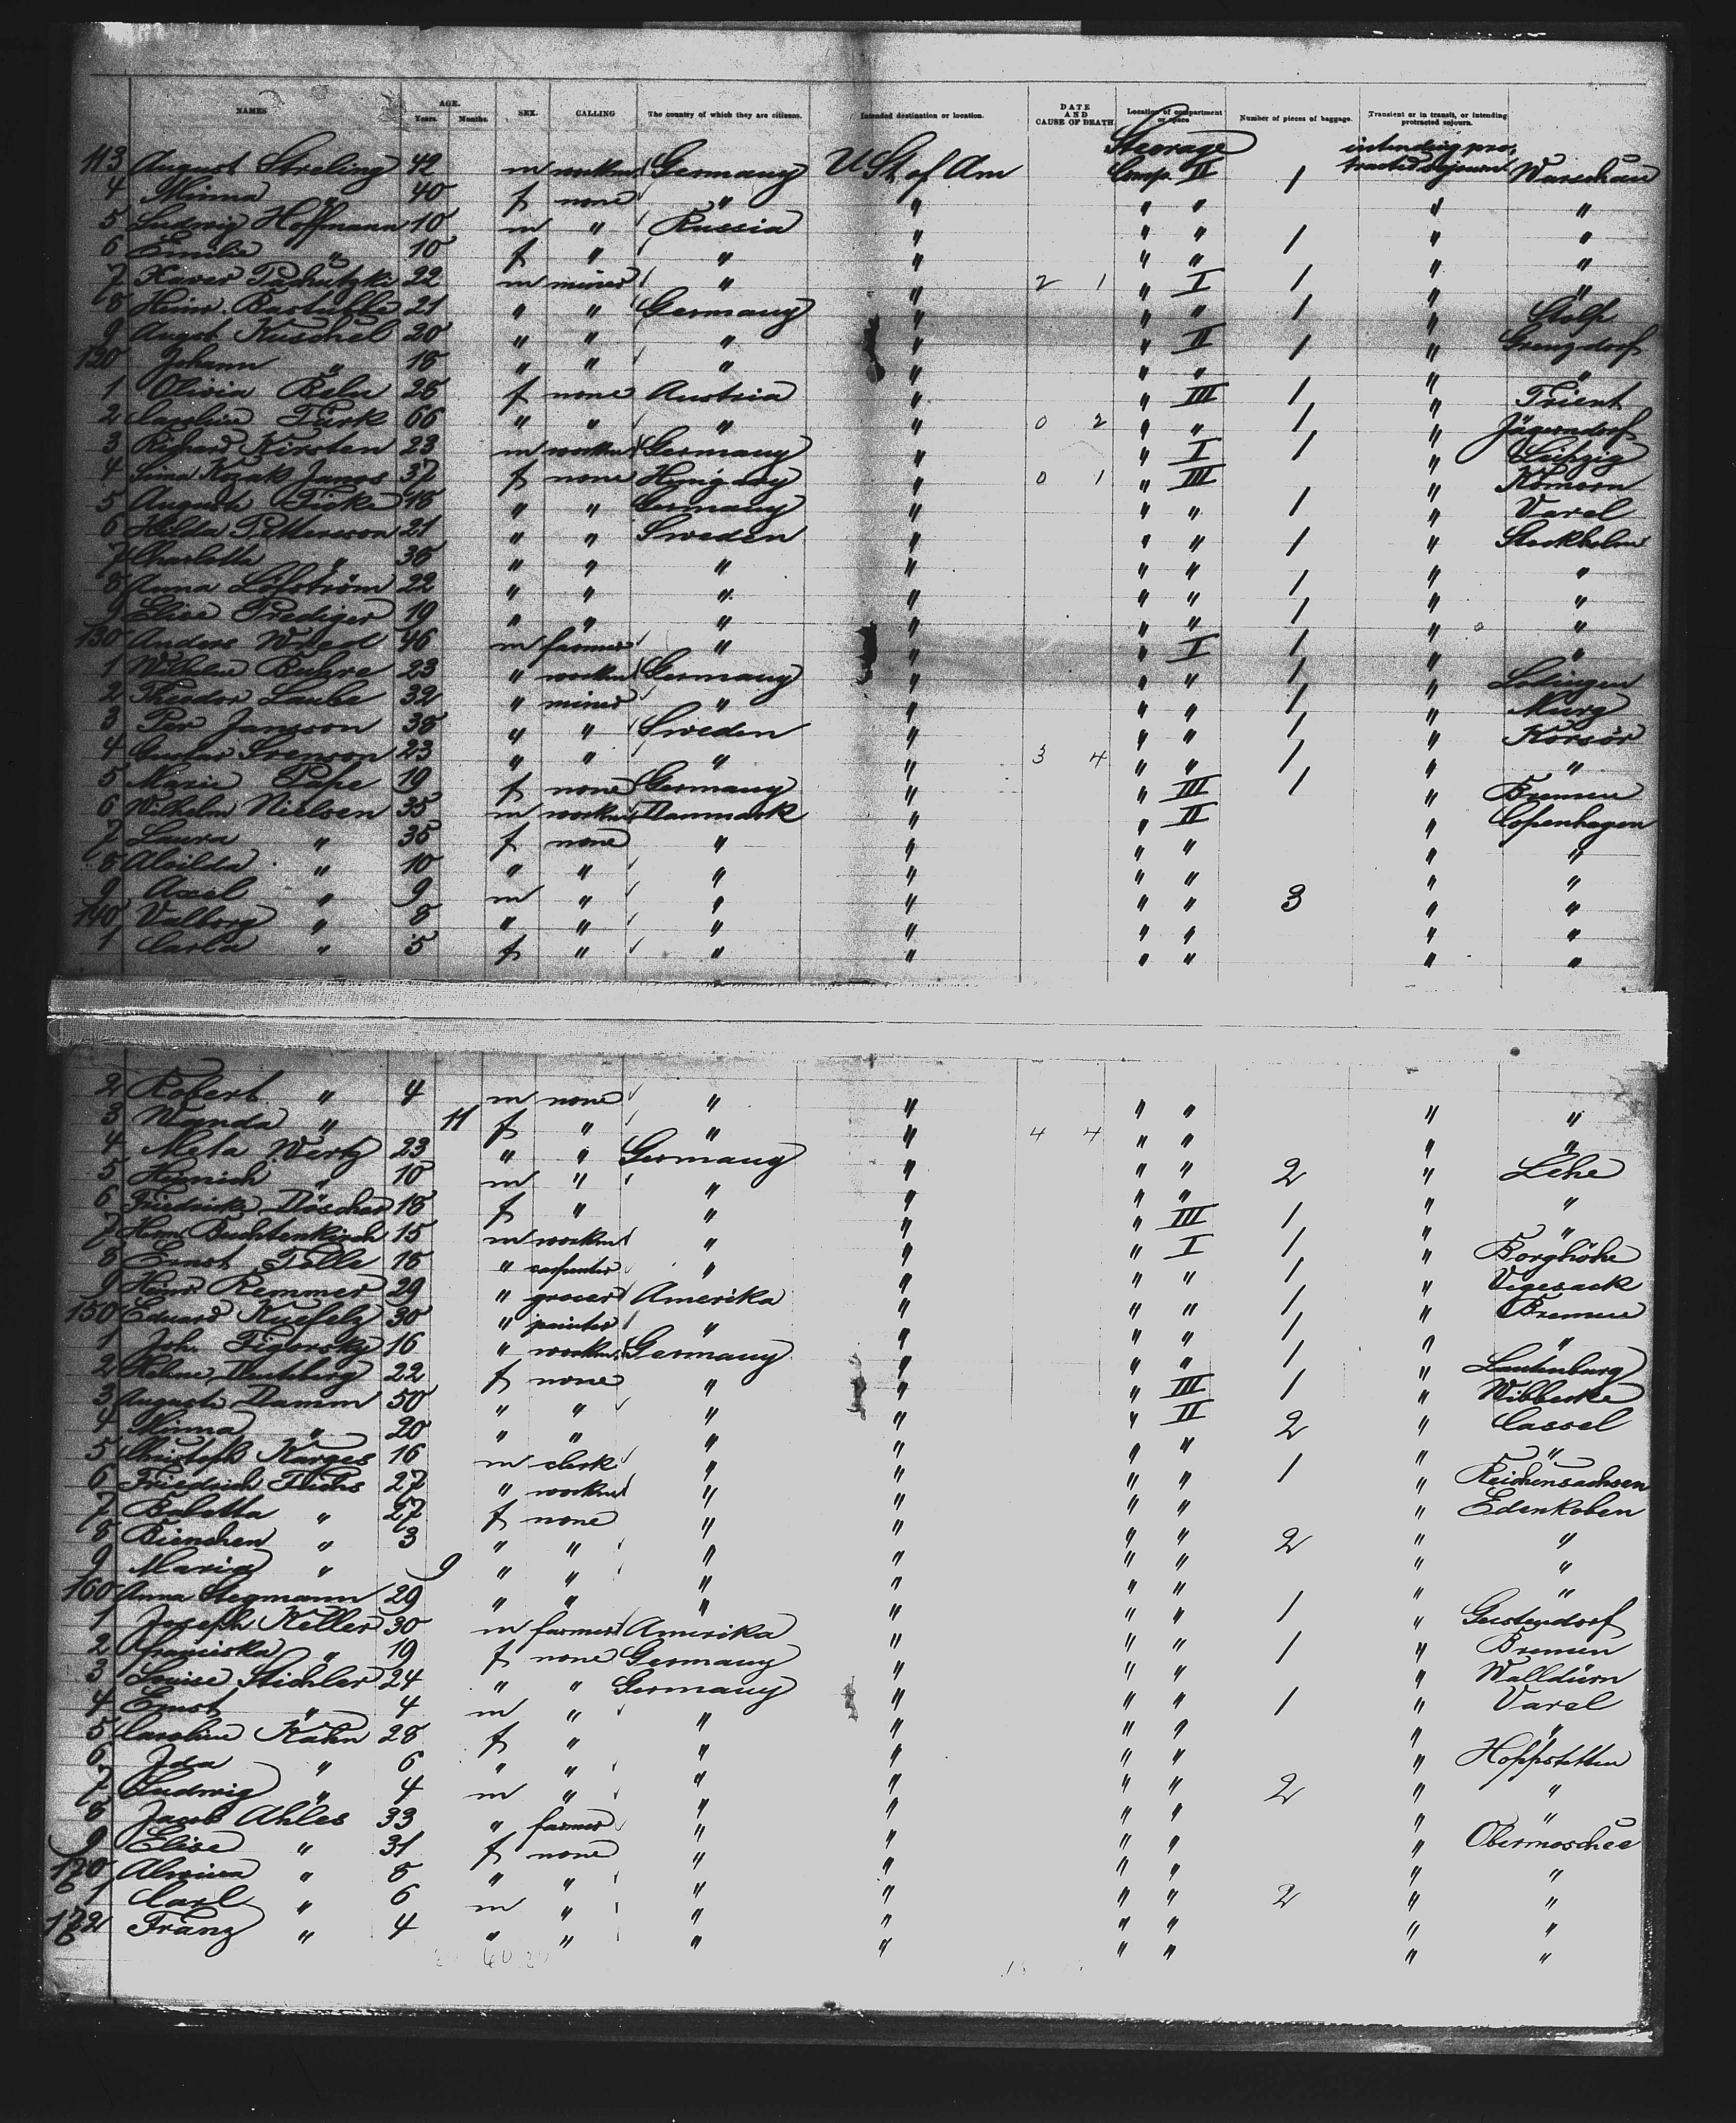 NAMES AGE. Years. Months. SEX. CALLING The country of which they are citizens. Intended destination or location. DATE AND CAUSE OF DEATH Location of compartment or space Number of pieces of baggage. Transient or in transit, or intending protracted sojourn.
Steerage intending pro-
113 August Streling 42 m workm Germany U St of Am Comp. II 1 tracted sojourn Warschau
4 Minna " 40 f none " " " " " "
5 Ludwig Hoffmann 10 m " Russia " " " 1 " "
6 Emilie " 10 f " " " " " " "
7 Xaver 22 m miner " " 2 1 " I 1 " "
8 Heinr. 21 " " Germany " " " 1 " Stolp
9 August Kuschel 20 " " " " " II 1 " Grenzdorf
120 Johann " 18 " " " " " " " "
1 Olivia 25 f none Austria " " III 1 " Trient
2 Caroline Türk 66 " " " " 0 2 " " 1 " Jägerndorf
3 Richard Kirsten 23 m workm Germany " " I 1 " Leipzig
4 Kozak Janos 37 f none Hungary " 0 1 " III " Komorn
5 Auguste 18 " " Germany " " " 1 " Varel
6 Hilda Pettersson 21 " " Sweden " " " 1 " Stockholm
7 Charlotta " 36 " " " " " " " "
8 Anna Löfström 22 " " " " " " 1 " "
9 Elise Prediger 19 " " " " " " 1 " "
130 Anders 46 m farmer " " " I 1 " "
1 Wilhelm 23 " workm Germany " " " 1 "
2 Theodor Laube 32 " miner " " " " 1 " Murg
3 Per Jansson 38 " " Sweden " " " 1 " Korsör
4 Gustav Svensson 23 " " " " 3 4 " " 1 " "
5 Marie Pape 19 f none Germany " " III 1 " Bremen
6 Wilhelm Nielsen 35 m workm Danmark " " II " Copenhagen
7 Laura " 35 f none " " " " " "
8 Alvilda " 10 " " " " " " " "
9 Axel " 9 m " " " " " 3 " "
140 Valborg " 8 " " " " " " " "
1 Carla " 5 f " " " " " " "
2 Robert " 4 m none " " " " " "
3 Wanda " 11 f " " " 4 4 " " " "
4 Meta Wertz 23 " " Germany " " " 2 " Lehe
5 Heinrich " 10 m " " " " " " "
6 Friedricke Döscher 18 f " " " " III 1 " "
7 Herm Buchtenkirch 15 m workm " " " I 1 " Borghöhe
8 Ernst Tolle 18 " carpenter " " " " 1 " Vegesack
9 Heinr Remmer 29 " grocer Amerika " " " 1 " Bremen
150 Eduard 30 " painter " " " " 1 " "
1 Joh. Figorsky 16 " workm Germany " " " 1 " Lautenburg
2 Helene 22 f none " " " III 1 " Wibbecke
3 Auguste Damm 50 " " " " " II 2 " Cassel
4 Minna " 20 " " " " " " " "
5 Christoph Karges 16 m clerk " " " " 1 " Reichensachsen
6 Friedrich Fuchs 27 " workm " " " " " Edenkoben
7 Babetta " 27 f none " " " " 2 " "
8 Bienchen " 3 " " " " " " " "
9 Maria " 9 " " " " " " " "
160 Anna Stegmann 29 " " " " " " 1 " Geestendorf
1 Joseph Keller 30 m farmer Amerika " " " 1 " Bremen
2 Franciska " 19 f none Germany " " " " Walldürn
3 Louise Stichler 24 " " Germany " " " 1 " Varel
4 Ernst " 4 m " " " " " " "
5 Caroline Kahn 28 f " " " " " " Hoppstetten
6 Ida " 6 " " " " " " 2 " "
7 Ludwig " 4 m " " " " " " "
8 Jacob Ahles 33 " farmer " " " " " Obermoschel
9 Elise " 31 f none " " " " " "
170 Alwina " 8 " " " " " " 2 " "
1 Carl " 6 m " " " " " " "
172 Franz " 4 " " " " " " " "